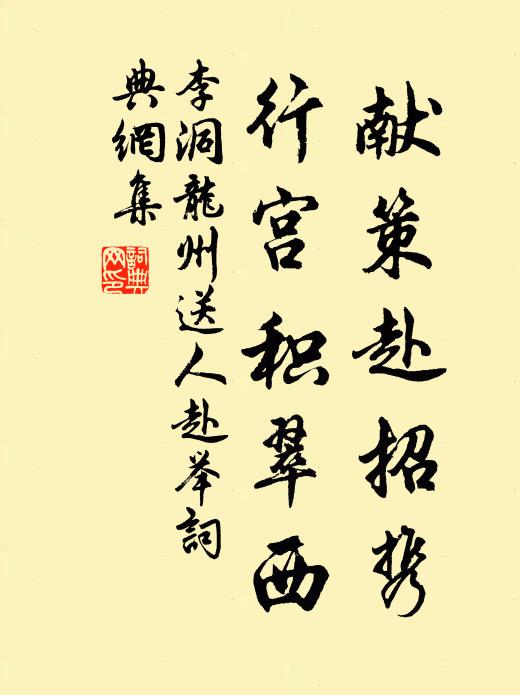 献策赴招携
行宫积翠西
李洞龍州送人赴举詞
典網集
詞典网印